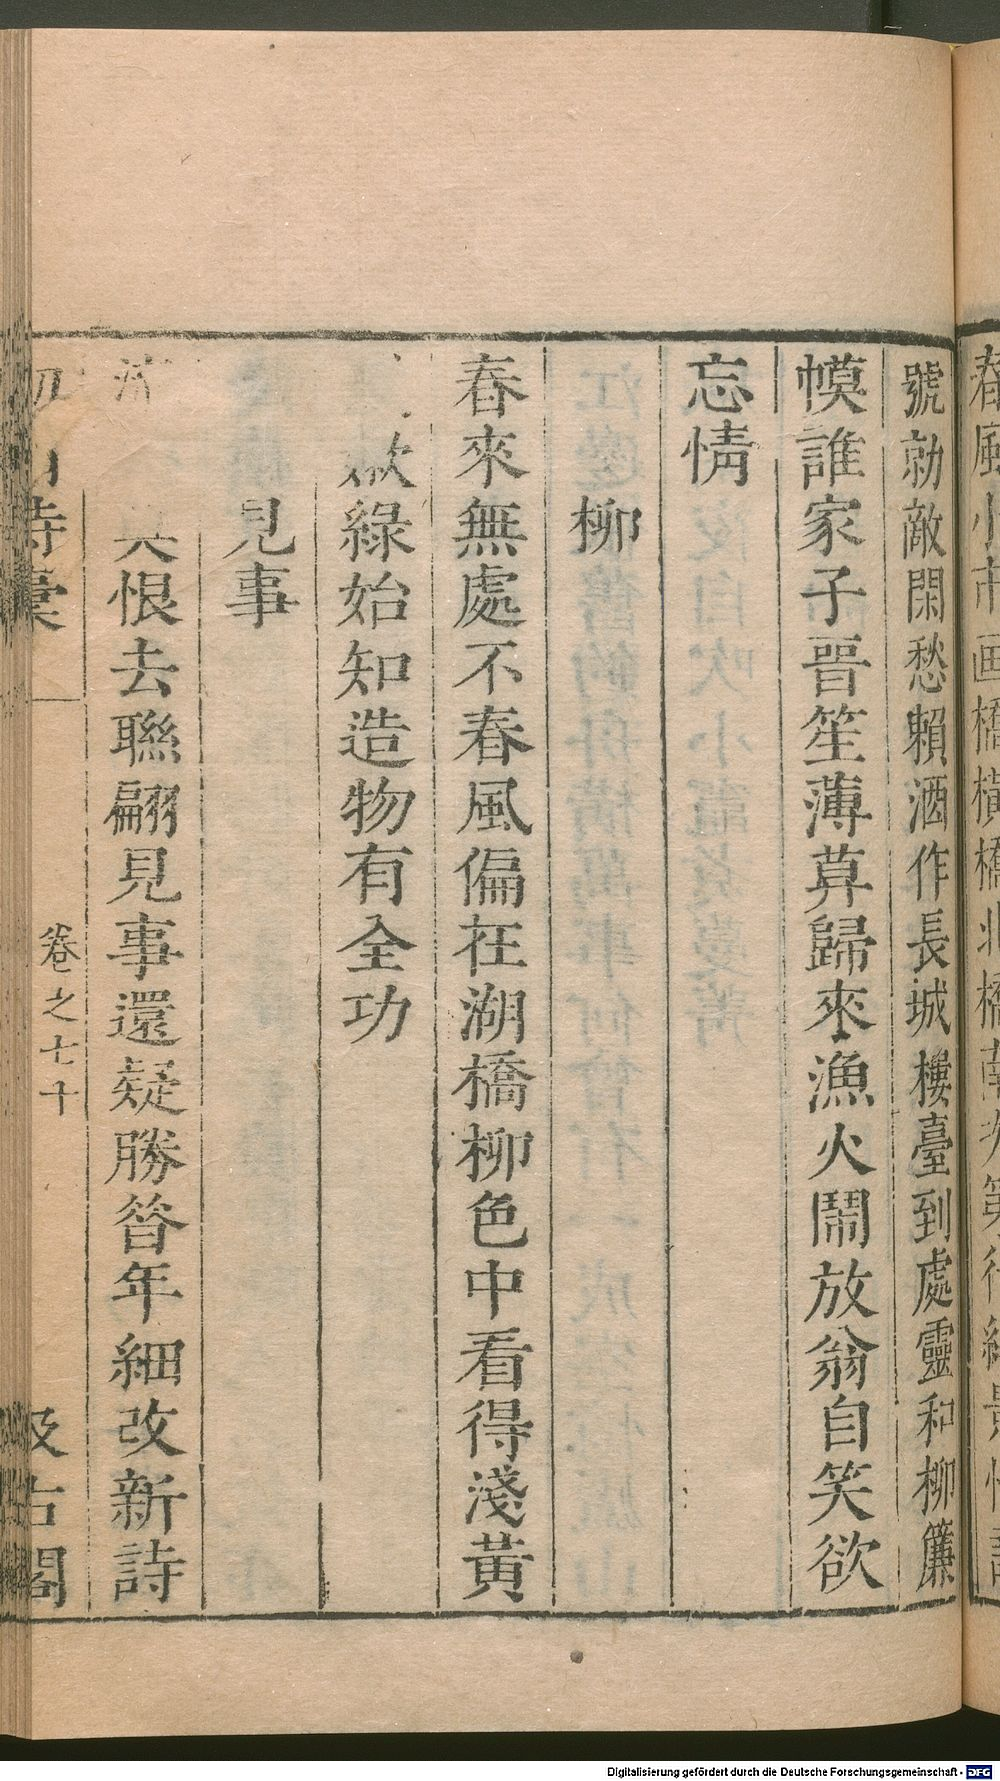 號勍敵閑愁賴酒作長城樓臺到處靈和柳簾
幙誰家子晉笙薄莫歸來漁火鬧放翁自笑欲
忘情
柳
春來無處不春風偏在湖橋柳色中看得淺黃
綠始知造物有全功
見事
恨去聯翩見事還疑勝昝年細改新詩
詩稾
卷之七十
汲古閣
Digitalisierung gefördert durch die Deutsche Forschungsgemeinschaft - DFG